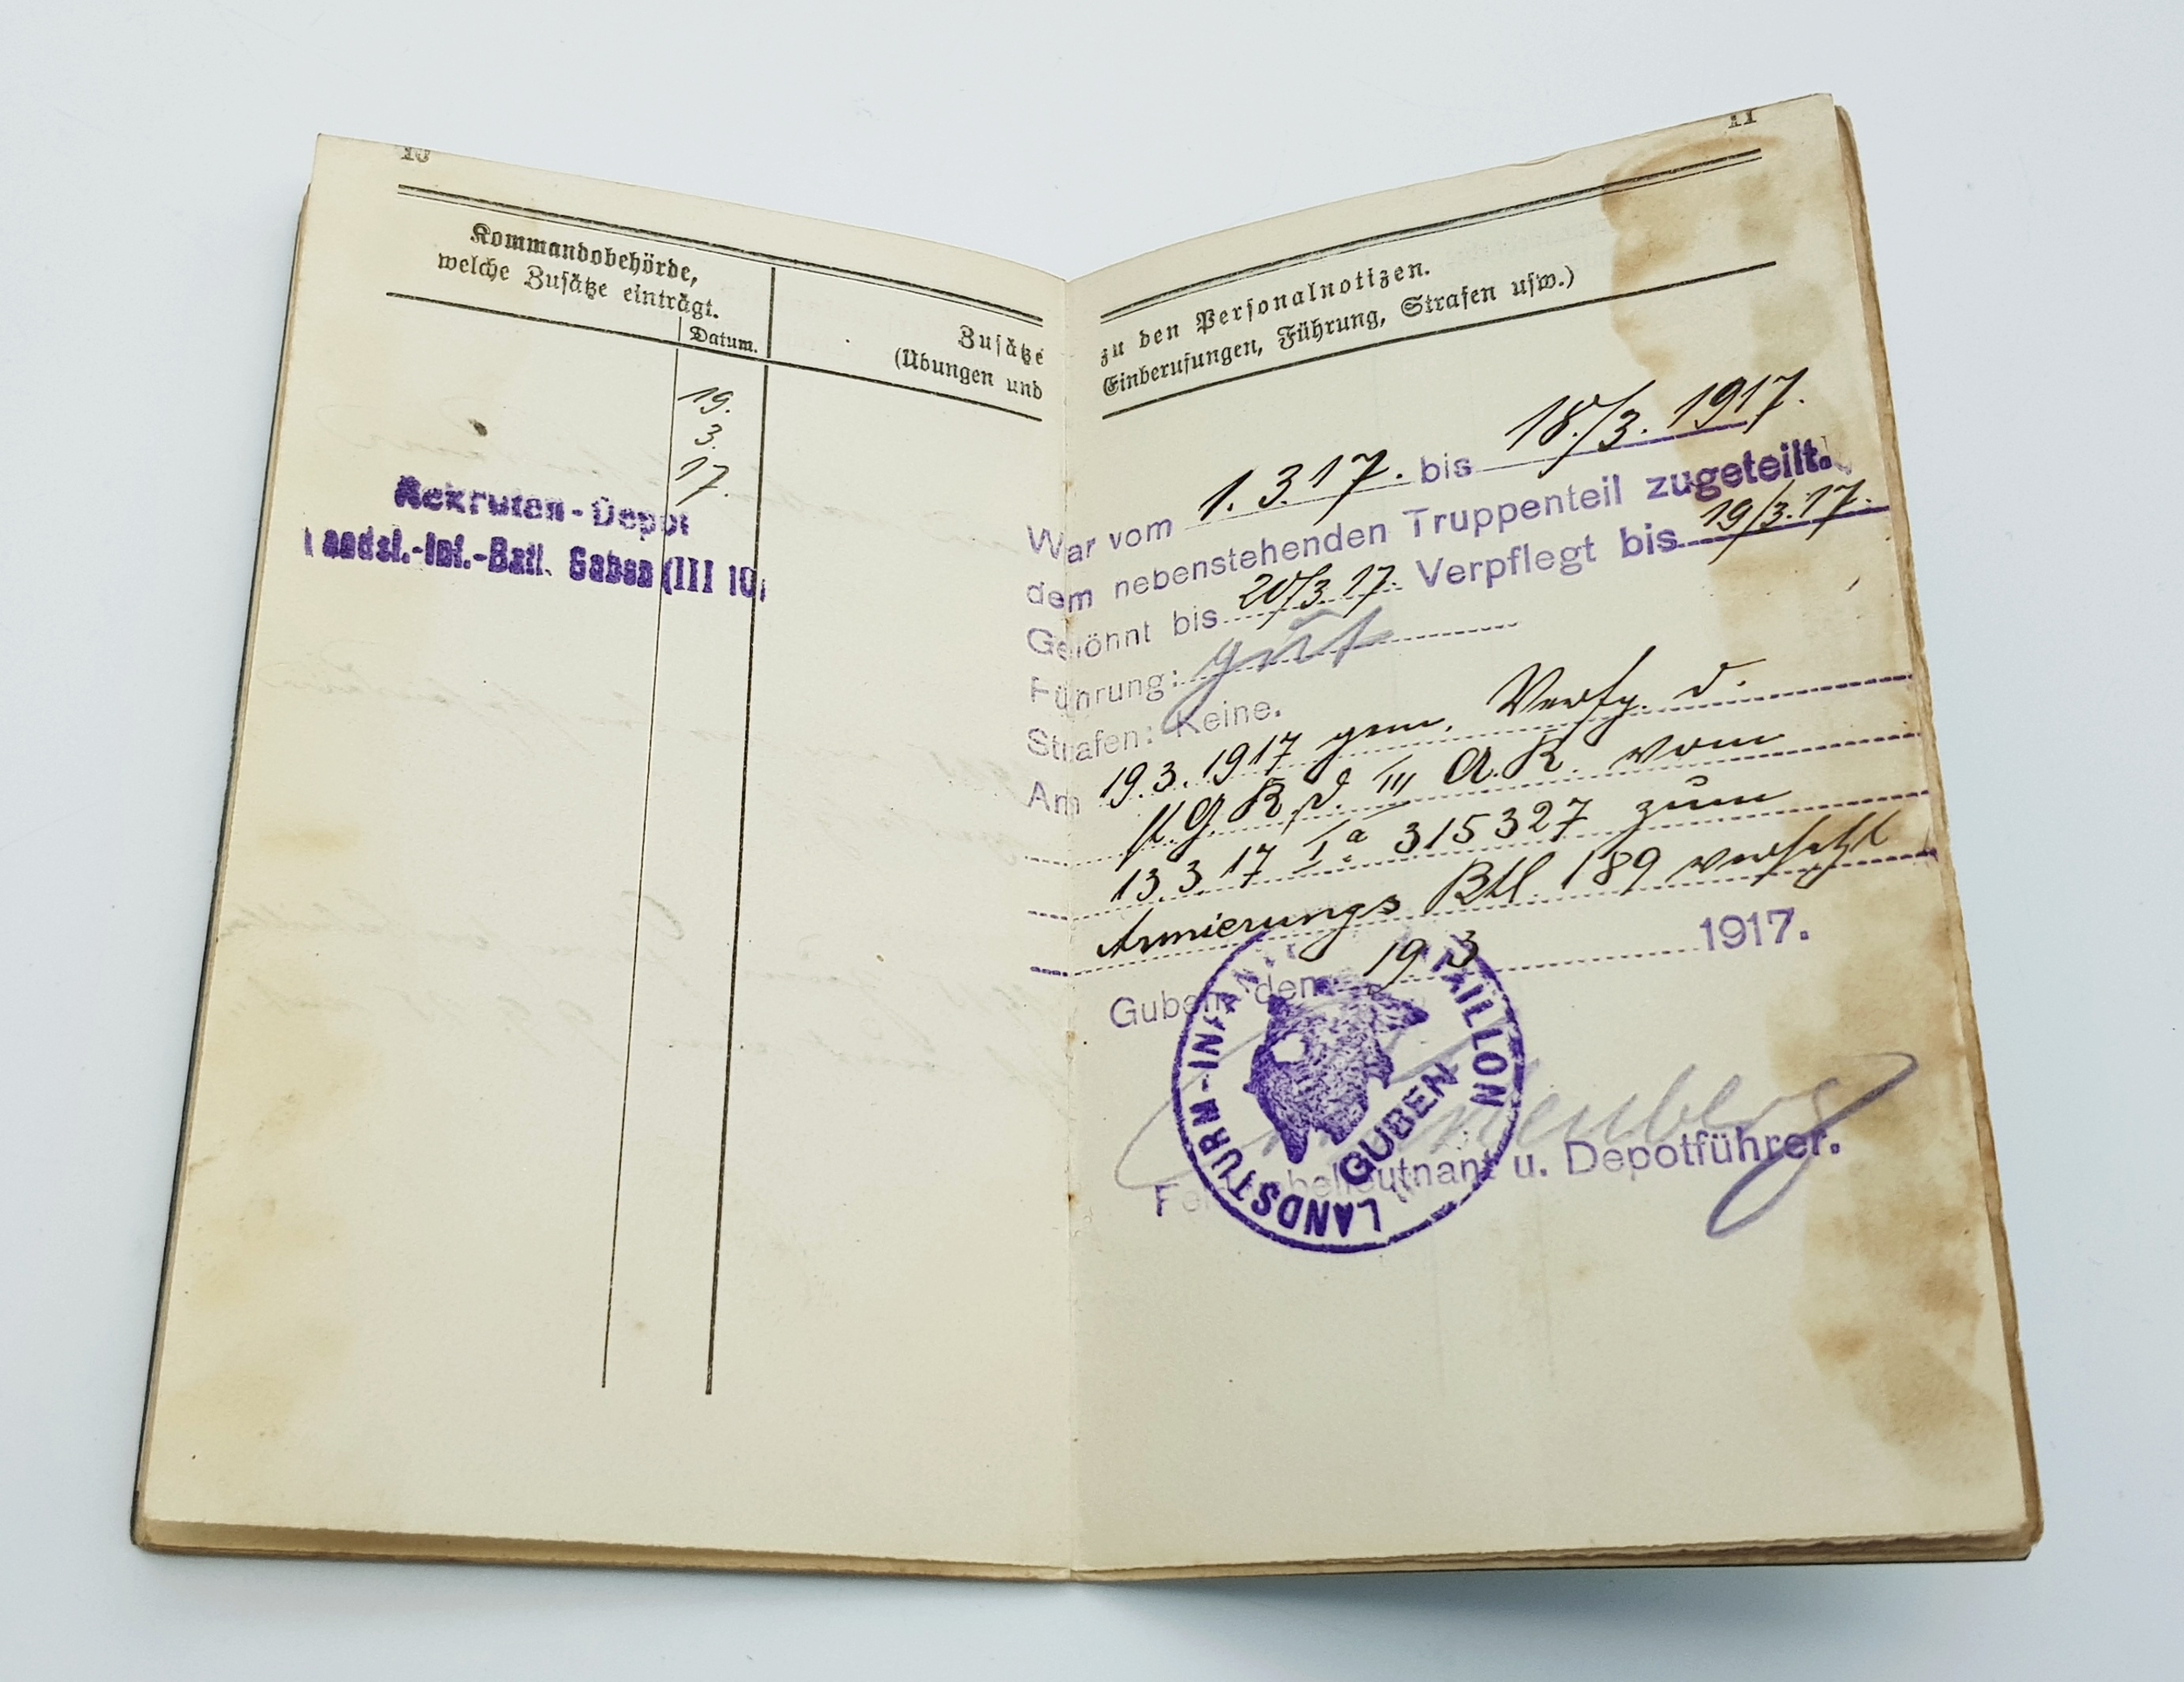 10
Kommandobehörde,
welche Zusätze einträgt.
Datum.
Zusätze
(Übungen und
19.
3.
17.
Rekruten-Depot
Landst.-Inf.-Batl. Guben (III 10)
11
zu den Personalnotizen.
Einberufungen, Führung, Strafen usw.)
War vom 1.3.17. bis 18./3. 1917.
dem nebenstehenden Truppenteil zugeteilt.
Gelöhnt bis 20/3.17. Verpflegt bis 19/3.17.
Führung: gut
Strafen: Keine.
Am 19.3.1917 gem. Verfg. d.
st. G. K. d. III A.K. vom
13.3.17 Ia 315327 zum
Armierungs Btl. 189 versetzt
Guben, den 19 3 1917.
LANDSTURM-INFANT BATAILLON
GUBEN
Feldwebelleutnant u. Depotführer.